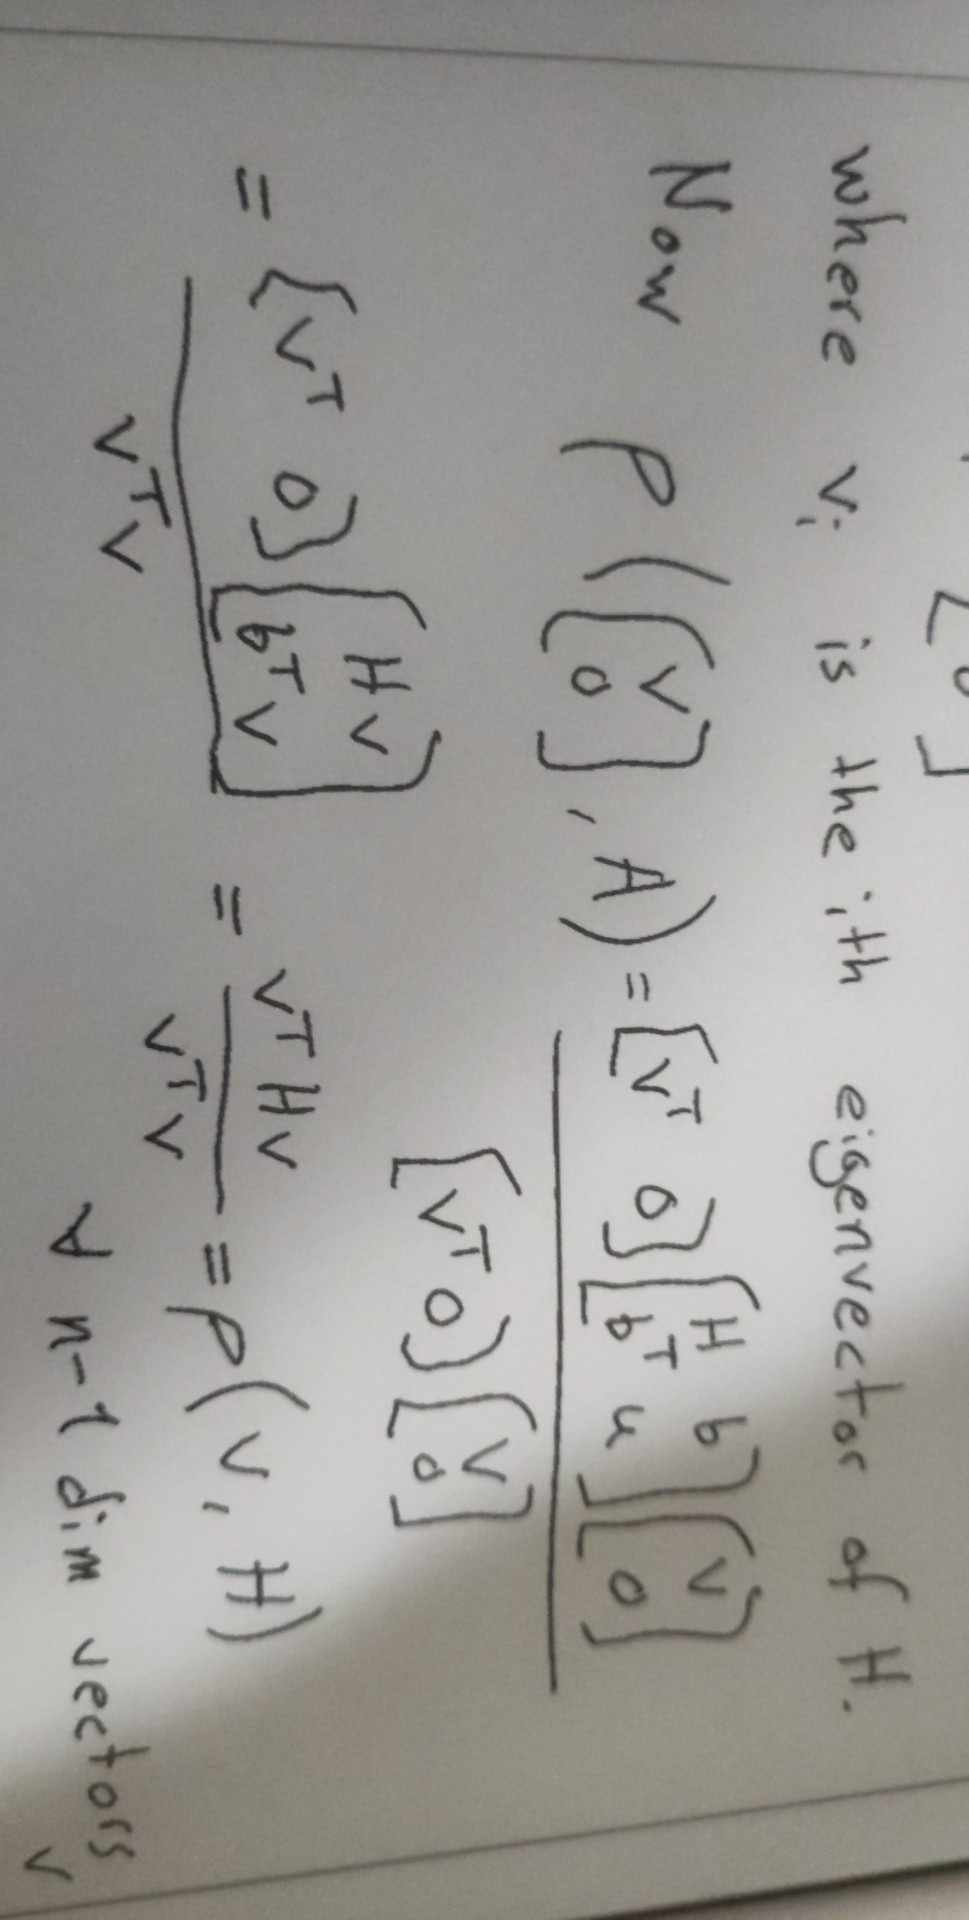 [0]
where vi is the ith eigenvector of H.
Now ρ([v 0], A) = [vᵀ 0][H b bᵀ u][v 0]
[vᵀ 0][v 0]
= [vᵀ 0][Hv bᵀv] = vᵀHv = ρ(v, H)
vᵀv vᵀv
∀ n-1 dim vectors
v